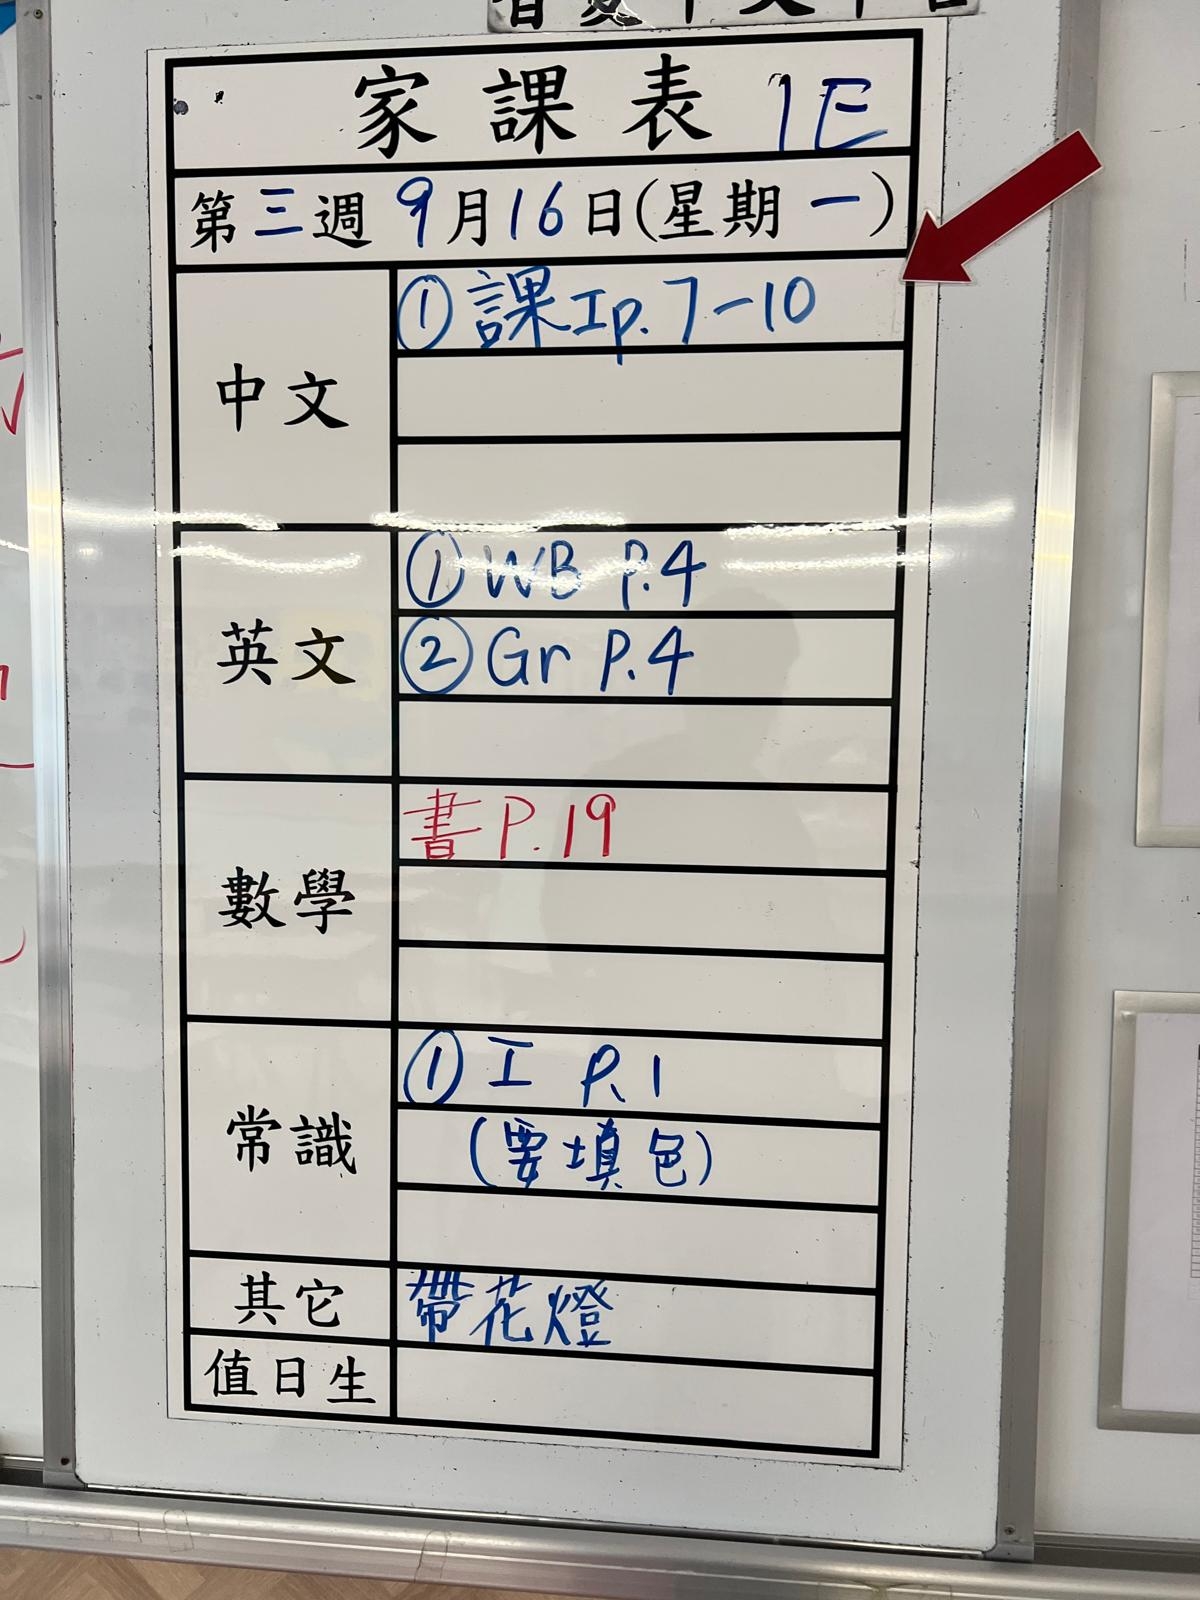 家課表 1E
第三週 9月16日(星期一)
中文
① 課工p.7-10
英文
① WB P.4
② Gr P.4
數學
書 P.19
常識
① 工 P.1
(要填色)
其它
帶花燈
值日生